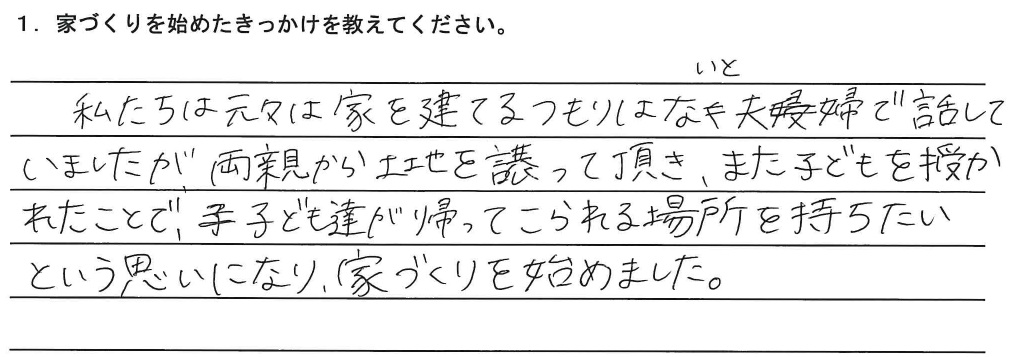 1. 家づくりを始めたきっかけを教えてください。
いと
私たちは元々は家を建てるつもりはな夫婦で話して
いましたが、両親から土地を譲って頂き、また子どもを授か
れたことで、子ども達が帰ってこられる場所を持ちたい
という思いになり、家づくりを始めました。